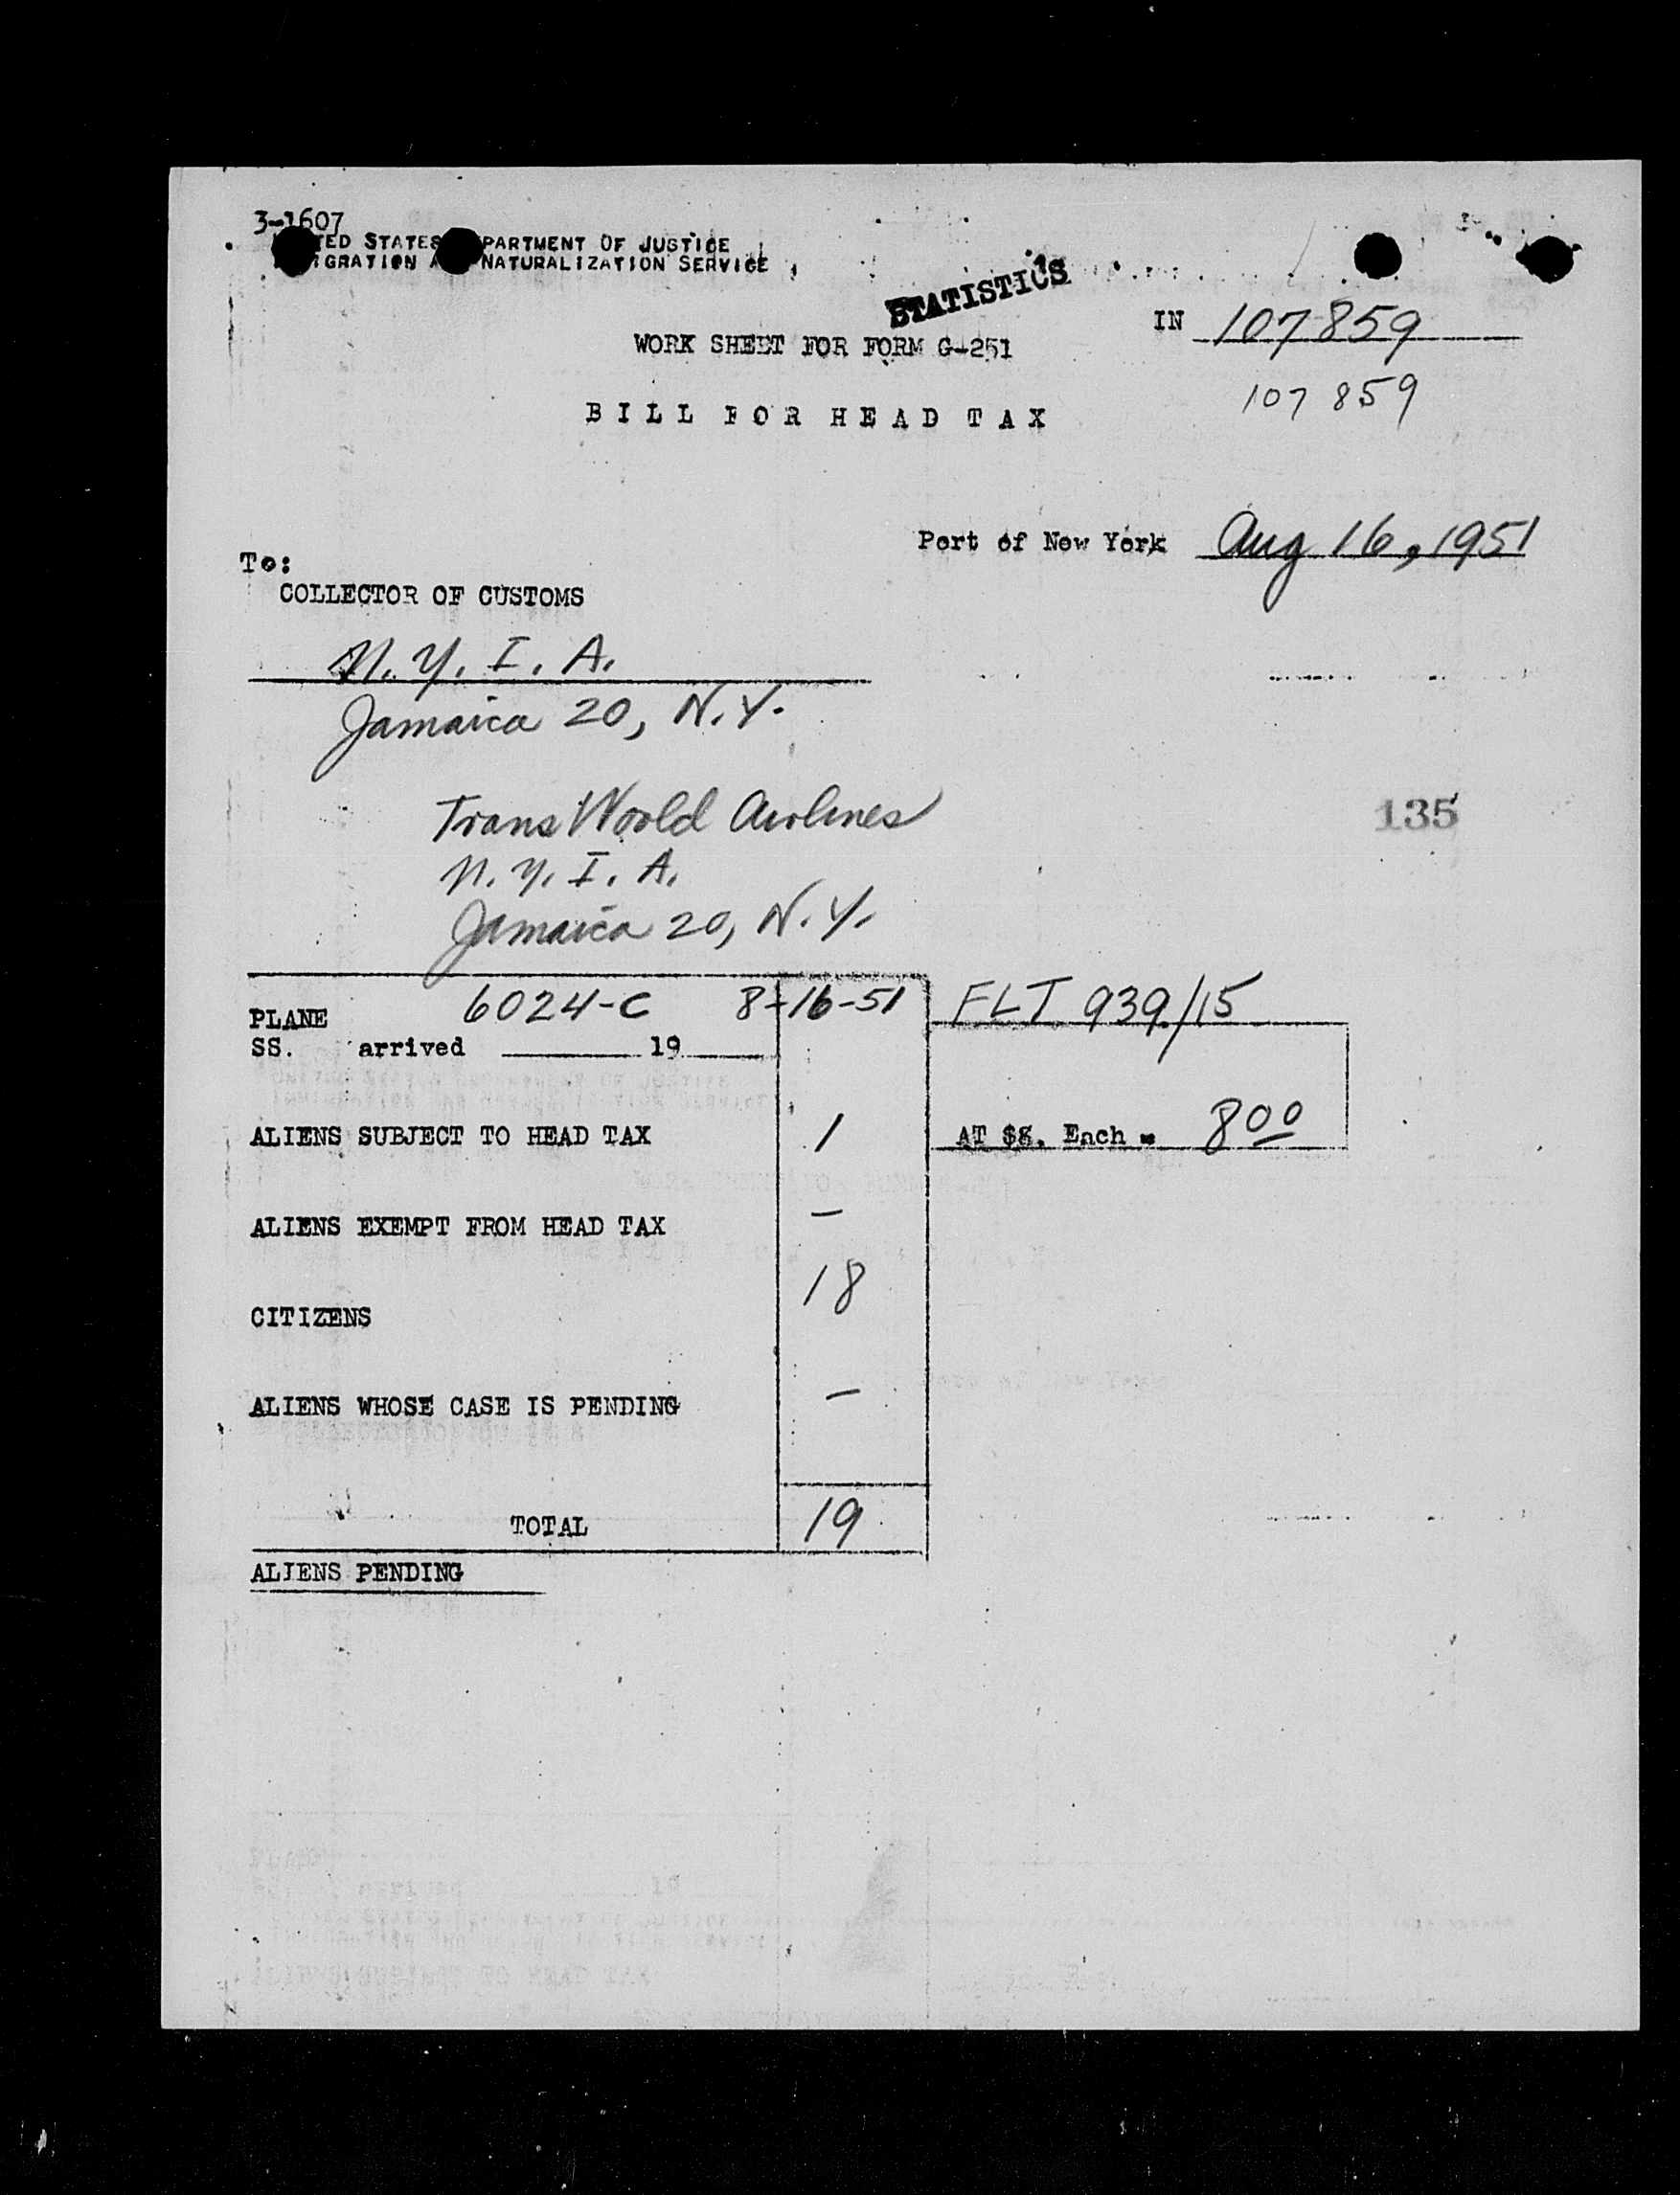 3-1607
TED STATES PARTMENT OF JUSTICE
IGRATION A NATURALIZATION SERVICE
STATISTICS
IN 107859
WORK SHEET FOR FORM G-251
107 859
BILL FOR HEAD TAX
Port of New York Aug 16, 1951
To:
COLLECTOR OF CUSTOMS
N.Y.I.A.
Jamaica 20, N.Y.
Trans World Airlines
135
N.Y.I.A.
Jamaica 20, N.Y.
PLANE 6024-C 8-16-51 FLT 939/15
SS. arrived 19
ALIENS SUBJECT TO HEAD TAX 1 AT $8. Each = 8 00
ALIENS EXEMPT FROM HEAD TAX –
CITIZENS 18
ALIENS WHOSE CASE IS PENDING –
TOTAL 19
ALIENS PENDING